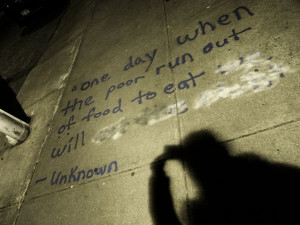 "One day when
the poor run out
of food to eat ...
will
- Unknown